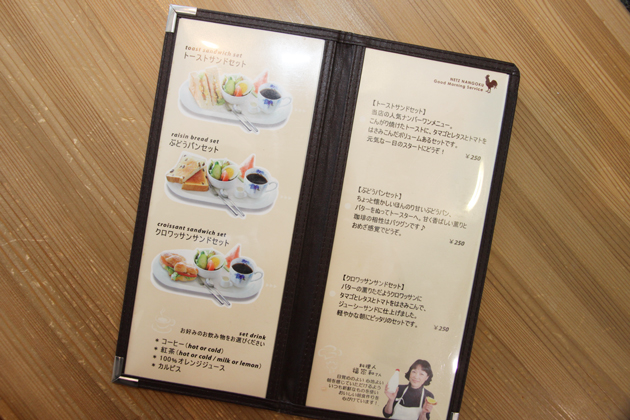 toast sandwich set
トーストサンドセット
raisin bread set
ぶどうパンセット
croissant sandwich set
クロワッサンサンドセット
set drink
お好みのお飲み物をお選びください
● コーヒー (hot or cold)
● 紅茶 (hot or cold / milk or lemon)
● 100%オレンジジュース
● カルピス
NETZ NANGOKU
Good Morning Service
【トーストサンドセット】
当店の人気ナンバーワンメニュー。
こんがり焼けたトーストに、タマゴとレタスとトマトを
はさみこんだボリュームあるセットです。
元気な一日のスタートにどうぞ！
￥250
【ぶどうパンセット】
ちょっと懐かしいほんのり甘いぶどうパン。
バターをぬってトースターへ。甘く香ばしい薫りと
珈琲の相性はバツグンです♪
おめざ感覚でどうぞ。
￥250
【クロワッサンサンドセット】
バターの薫りただようクロワッサンに
タマゴとレタスとトマトをはさみこんで、
ジューシーサンドに仕上げました。
軽やかな朝にピッタリのセットです。
￥250
料理人